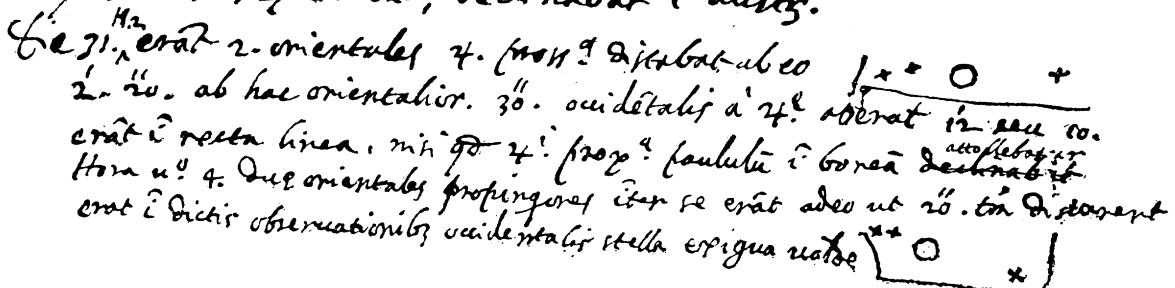 declinabat ī austr.
Die 31. H.2 erāt 2. orientales ♃. proxª distabat ab eo
2́. 20̋. ab hac orientalior. 30̋. occidētalis à ♃ᵉ aberat 1́2 seu 10.
erāt ī recta linea, nisi qd ♃ⁱ proxª paululū ī boreā attollebatur
Hora uº 4. duę orientales propinqores īter se erāt adeo ut 20̋. tm̄ distarent
erat ī dictis obseruationibꝫ occidentalis stella exigua valde